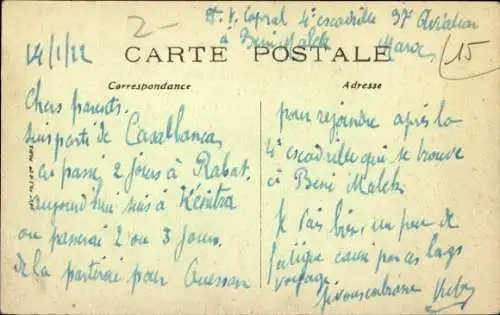 2
H. V. Caporal 4e escadrille 37 Aviation
à Beni Malek
Maroc
15
24/1/22
CARTE POSTALE
Correspondance
Adresse
Chers parents.
suis parti de Casablanca
ai passé 2 jours à Rabat.
aujourd'hui suis à Kénitra
ou passerai 2 ou 3 jours.
de la partirai pour Ouessan
pour rejoindre après la
4e escadrille qui se trouve
à Beni Malek.
Je vais bien, un peu de
fatigue causé par ces longs
voyage.
je vous embrasse